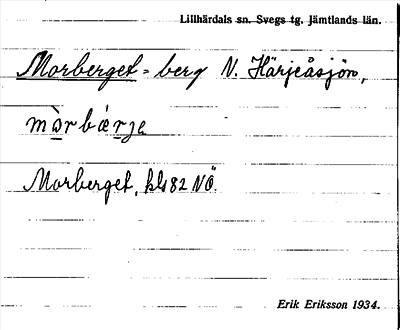 Lillhärdals sn. Svegs tg. Jämtlands län.
Morberget = berg N. Härjeåsjön,
mòrbǽrje
Morberget, kls 82 NÖ.
Erik Eriksson 1934.